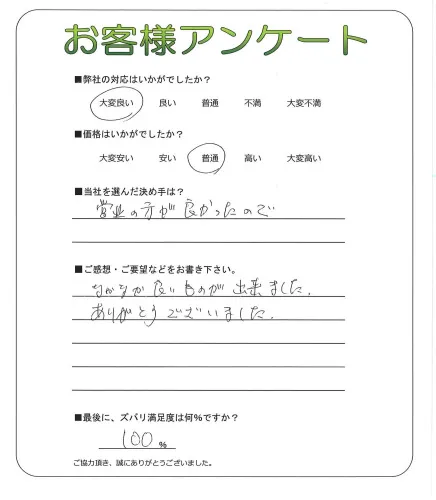 お客様アンケート
■弊社の対応はいかがでしたか？
大変良い 良い 普通 不満 大変不満
■価格はいかがでしたか？
大変安い 安い 普通 高い 大変高い
■当社を選んだ決め手は？
営業の方が良かったので
■ご感想・ご要望などをお書き下さい。
なかなか良いものが出来ました.
ありがとうございました.
■最後に、ズバリ満足度は何%ですか？
100 %
ご協力頂き、誠にありがとうございました。